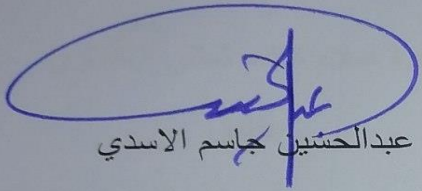 عبدالحسين جاسم الاسدي